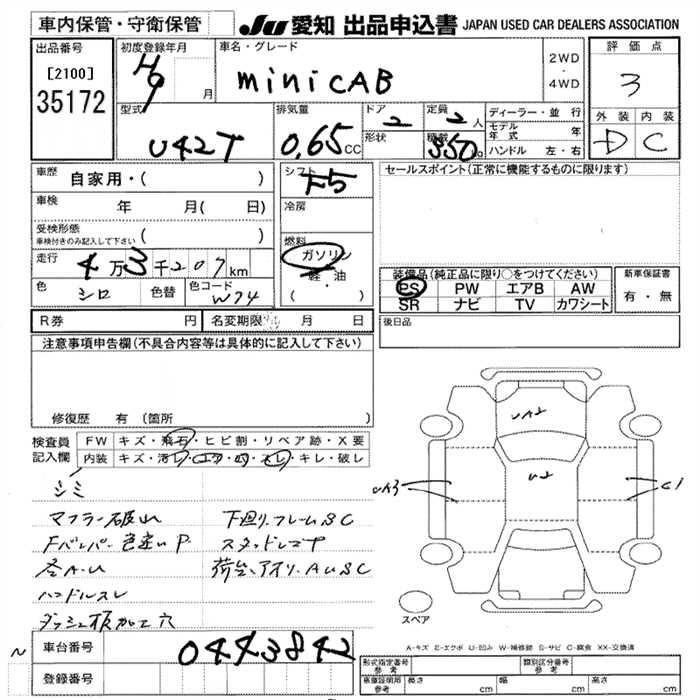 車内保管・守衛保管
JU 愛知 出品申込書 JAPAN USED CAR DEALERS ASSOCIATION
出品番号
[2100]
35172
初度登録年月
H9 月
車名・グレード
miniCAB
2WD
・
4WD
評価点
3
外装 内装
D C
型式
U42T
排気量
0.65 CC
ドア
2
形状
定員
2 人
積載
350
ディーラー・並行
モデル年式 年
ハンドル 左・右
車歴
自家用・( )
車検
年 月( 日)
受検形態
車検付きのみ記入して下さい ( )
走行
4万3千207km
色
シロ
色替
色コード
W74
シフト
F5
冷房
燃料
ガソリン
軽・油
( ・ )
セールスポイント(正常に機能するものに限ります)
装備品(純正品に限り○をつけてください)
PS PW エアB AW
SR ナビ TV カワシート
新車保証書
有・無
後日品
R券 円
名変期限 月 日
注意事項申告欄(不具合内容等は具体的に記入して下さい)
修復歴 有 (箇所
検査員記入欄
FW キズ・飛石・ヒビ割・リペア跡・X要
内装 キズ・汚レ・コゲ・穴・スレ・キレ・破レ
シミ
マフラー破レ
Fバンパー色違いP
各A.U
ハンドルスレ
ダッシュ板加工穴
下廻り.フレームSC
スタッドレス
荷台.アオリ.AUSC
UA2
U2
UA3
C1
スペア
A-キズ E-エクボ U-凹み W-補修跡 S-サビ C-腐食 XX-交換済
車台番号
0443842
登録番号
形式指定番号
参考
類別区分番号
参考
車庫証明用
参考
長さ cm
幅 cm
高さ cm